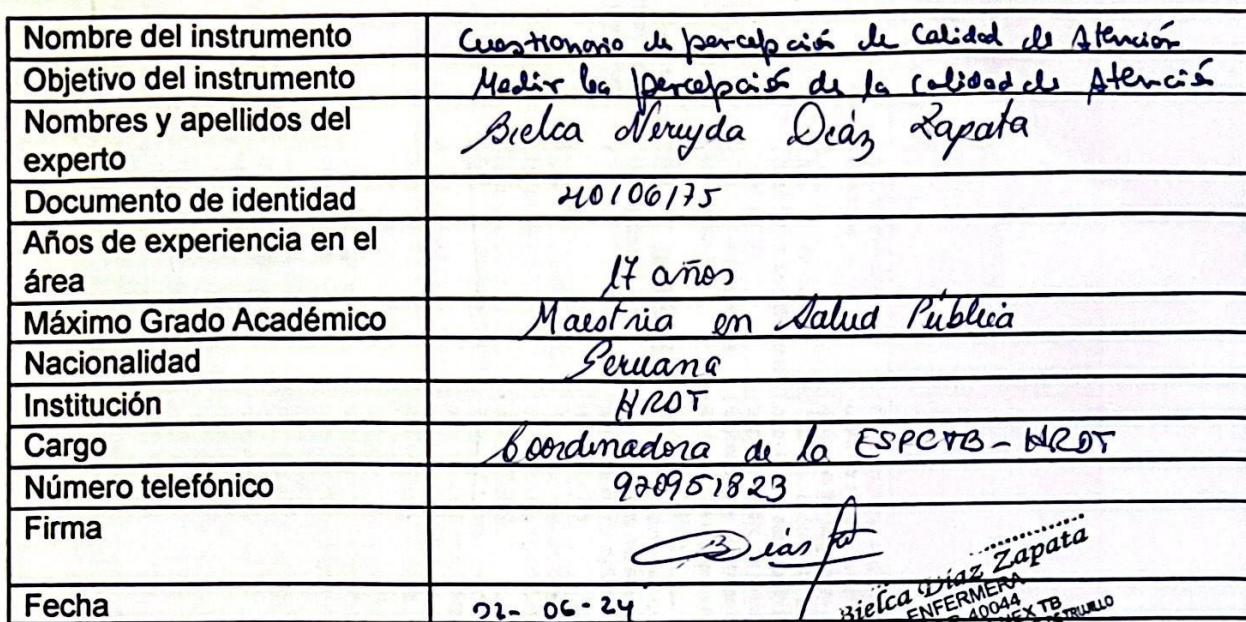 Nombre del instrumento Cuestionario de percepción de Calidad de Atención
Objetivo del instrumento Medir la percepción de la calidad de Atención
Nombres y apellidos del
experto Bielca Nereyda Diáz Zapata
Documento de identidad 40106175
Años de experiencia en el
área 17 años
Máximo Grado Académico Maestria en Salud Pública
Nacionalidad Peruana
Institución HRDT
Cargo Coordinadora de la ESPCTB - HRDT
Número telefónico 920951823
Firma Diás
Bielca Díaz Zapata
ENFERMERA
40044
TB
Fecha 06-24